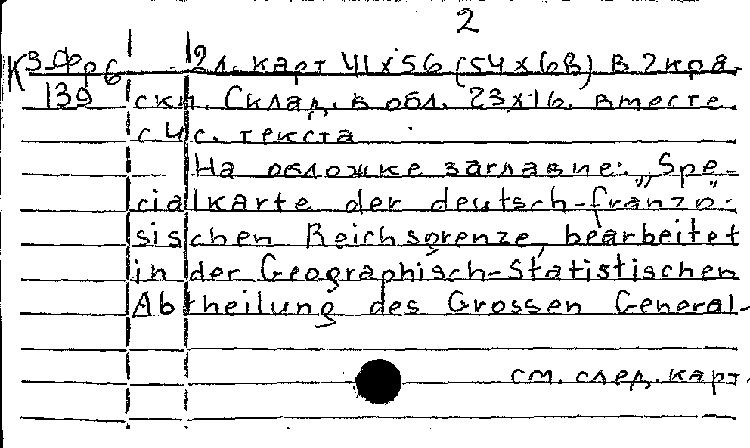 2
К 3-Фр 6 2 л. карт 41х56 (54х68) в 2 кра-
139 ски. Склад. в обл. 23х16. вместе
с 4 с. текста
На обложке заглавие: „Spe-
cialkarte der deutsch-franzö-
sischen Reichsgrenze, bearbeitet
in der Geographisch-Statistischen
Abtheilung des Grossen General-
см. след. карт.